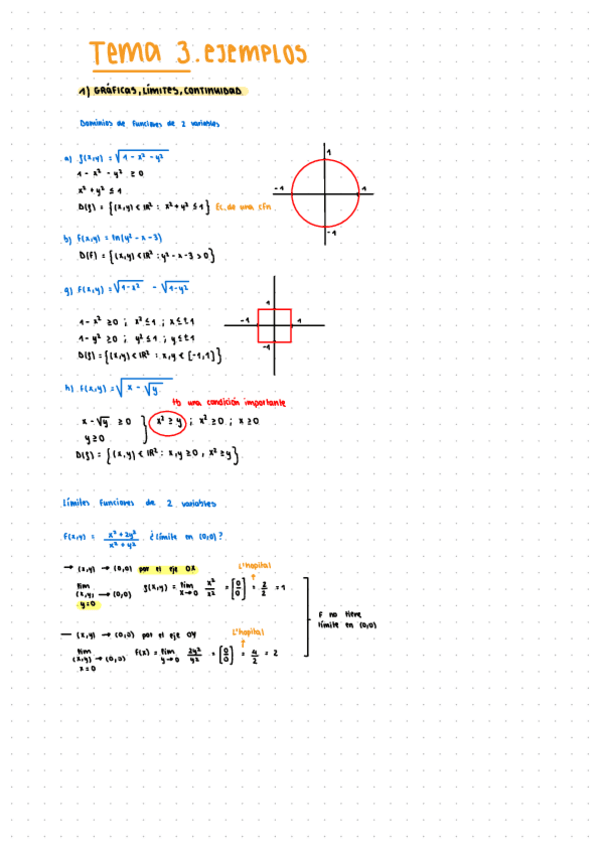 Tema 3. EJEMPLOS
1) GRÁFICAS, LÍMITES, CONTINUIDAD
Dominios de funciones de 2 variables
a) f(x,y) = √(1 - x² - y²)
1 - x² - y² ≥ 0
x² + y² ≤ 1
D(f) = {(x,y) ∈ IR² : x² + y² ≤ 1} Ec. de una cfn.
1
-1
1
-1
b) F(x,y) = ln(y² - x - 3)
D(F) = {(x,y) ∈ IR² : y² - x - 3 > 0}
g) F(x,y) = √(1-x²) - √(1-y²)
1 - x² ≥ 0 ; x² ≤ 1 ; x ≤ ±1
1 - y² ≥ 0 ; y² ≤ 1 ; y ≤ ±1
D(f) = {(x,y) ∈ IR² : x,y ∈ [-1,1]}
1
-1
1
-1
h) F(x,y) = √(x - √y)
tb una condición importante
x - √y ≥ 0 } x² ≥ y ; x² ≥ 0 ; x ≥ 0
y ≥ 0
D(f) = {(x,y) ∈ IR² : x,y ≥ 0, x² ≥ y}
Límites funciones de 2 variables
F(x,y) = (x² + 2y²)/(x² + y²) ¿límite en (0,0)?
→ (x,y) → (0,0) por el eje OX
L'hopital
lim (x,y) → (0,0) y=0 f(x,y) = lim x→0 x²/x² = [0/0] = 2/2 = 1
F no tiene
límite en (0,0)
— (x,y) → (0,0) por el eje OY
L'hopital
lim (x,y) → (0,0) x=0 F(x) = lim y→0 2y²/y² = [0/0] = 4/2 = 2